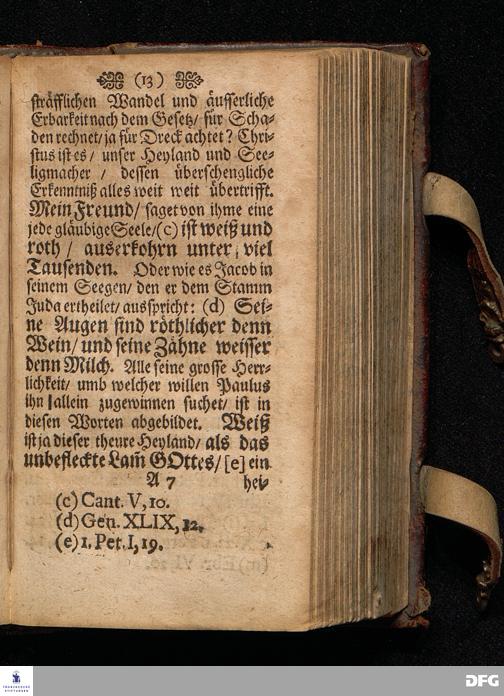 (13)
sträfflichen Wandel und äusserliche
Erbarkeit nach dem Gesetz/ für Scha-
den rechnet/ ja für Dreck achtet? Chri-
stus ist es/ unser Heyland und See-
ligmacher/ dessen überschengliche
Erkenntniß alles weit weit übertrifft.
Mein Freund/ saget von ihme eine
jede gläubige Seele/ (c) ist weiß und
roth/ auserkohrn unter, viel
Tausenden. Oder wie es Jacob in
seinem Seegen/ den er dem Stamm
Juda ertheilet/ ausspricht: (d) Sei-
ne Augen sind röthlicher denn
Wein/ und seine Zähne weisser
denn Milch. Alle seine grosse Herr-
lichkeit/ umb welcher willen Paulus
ihn allein zugewinnen suchet/ ist in
diesen Worten abgebildet. Weiß
ist ja dieser theure Heyland/ als das
unbefleckte Lam̃ GOttes/ [e] ein
A 7 hei-
(c) Cant. V, 10.
(d) Gen. XLIX, 12.
(e) 1. Pet. I, 19.
FRANCKESCHE
STIFTUNGEN
DFG